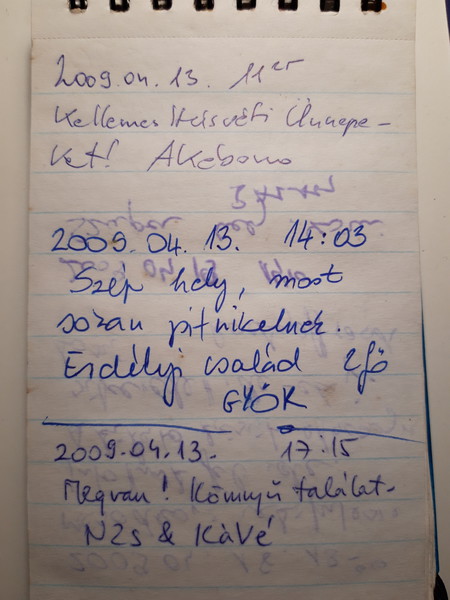 2009.04.13. 11²⁵
Kellemes Húsvéti Ünnepe-
ket! Akebono
2009.04.13. 14:03
Szép hely, most
sokan piknikelnek.
Erdélyi család 2fő
GYÖK
2009.04.13. 17:15
Megvan! Könnyű találat-
NZs & KáVé